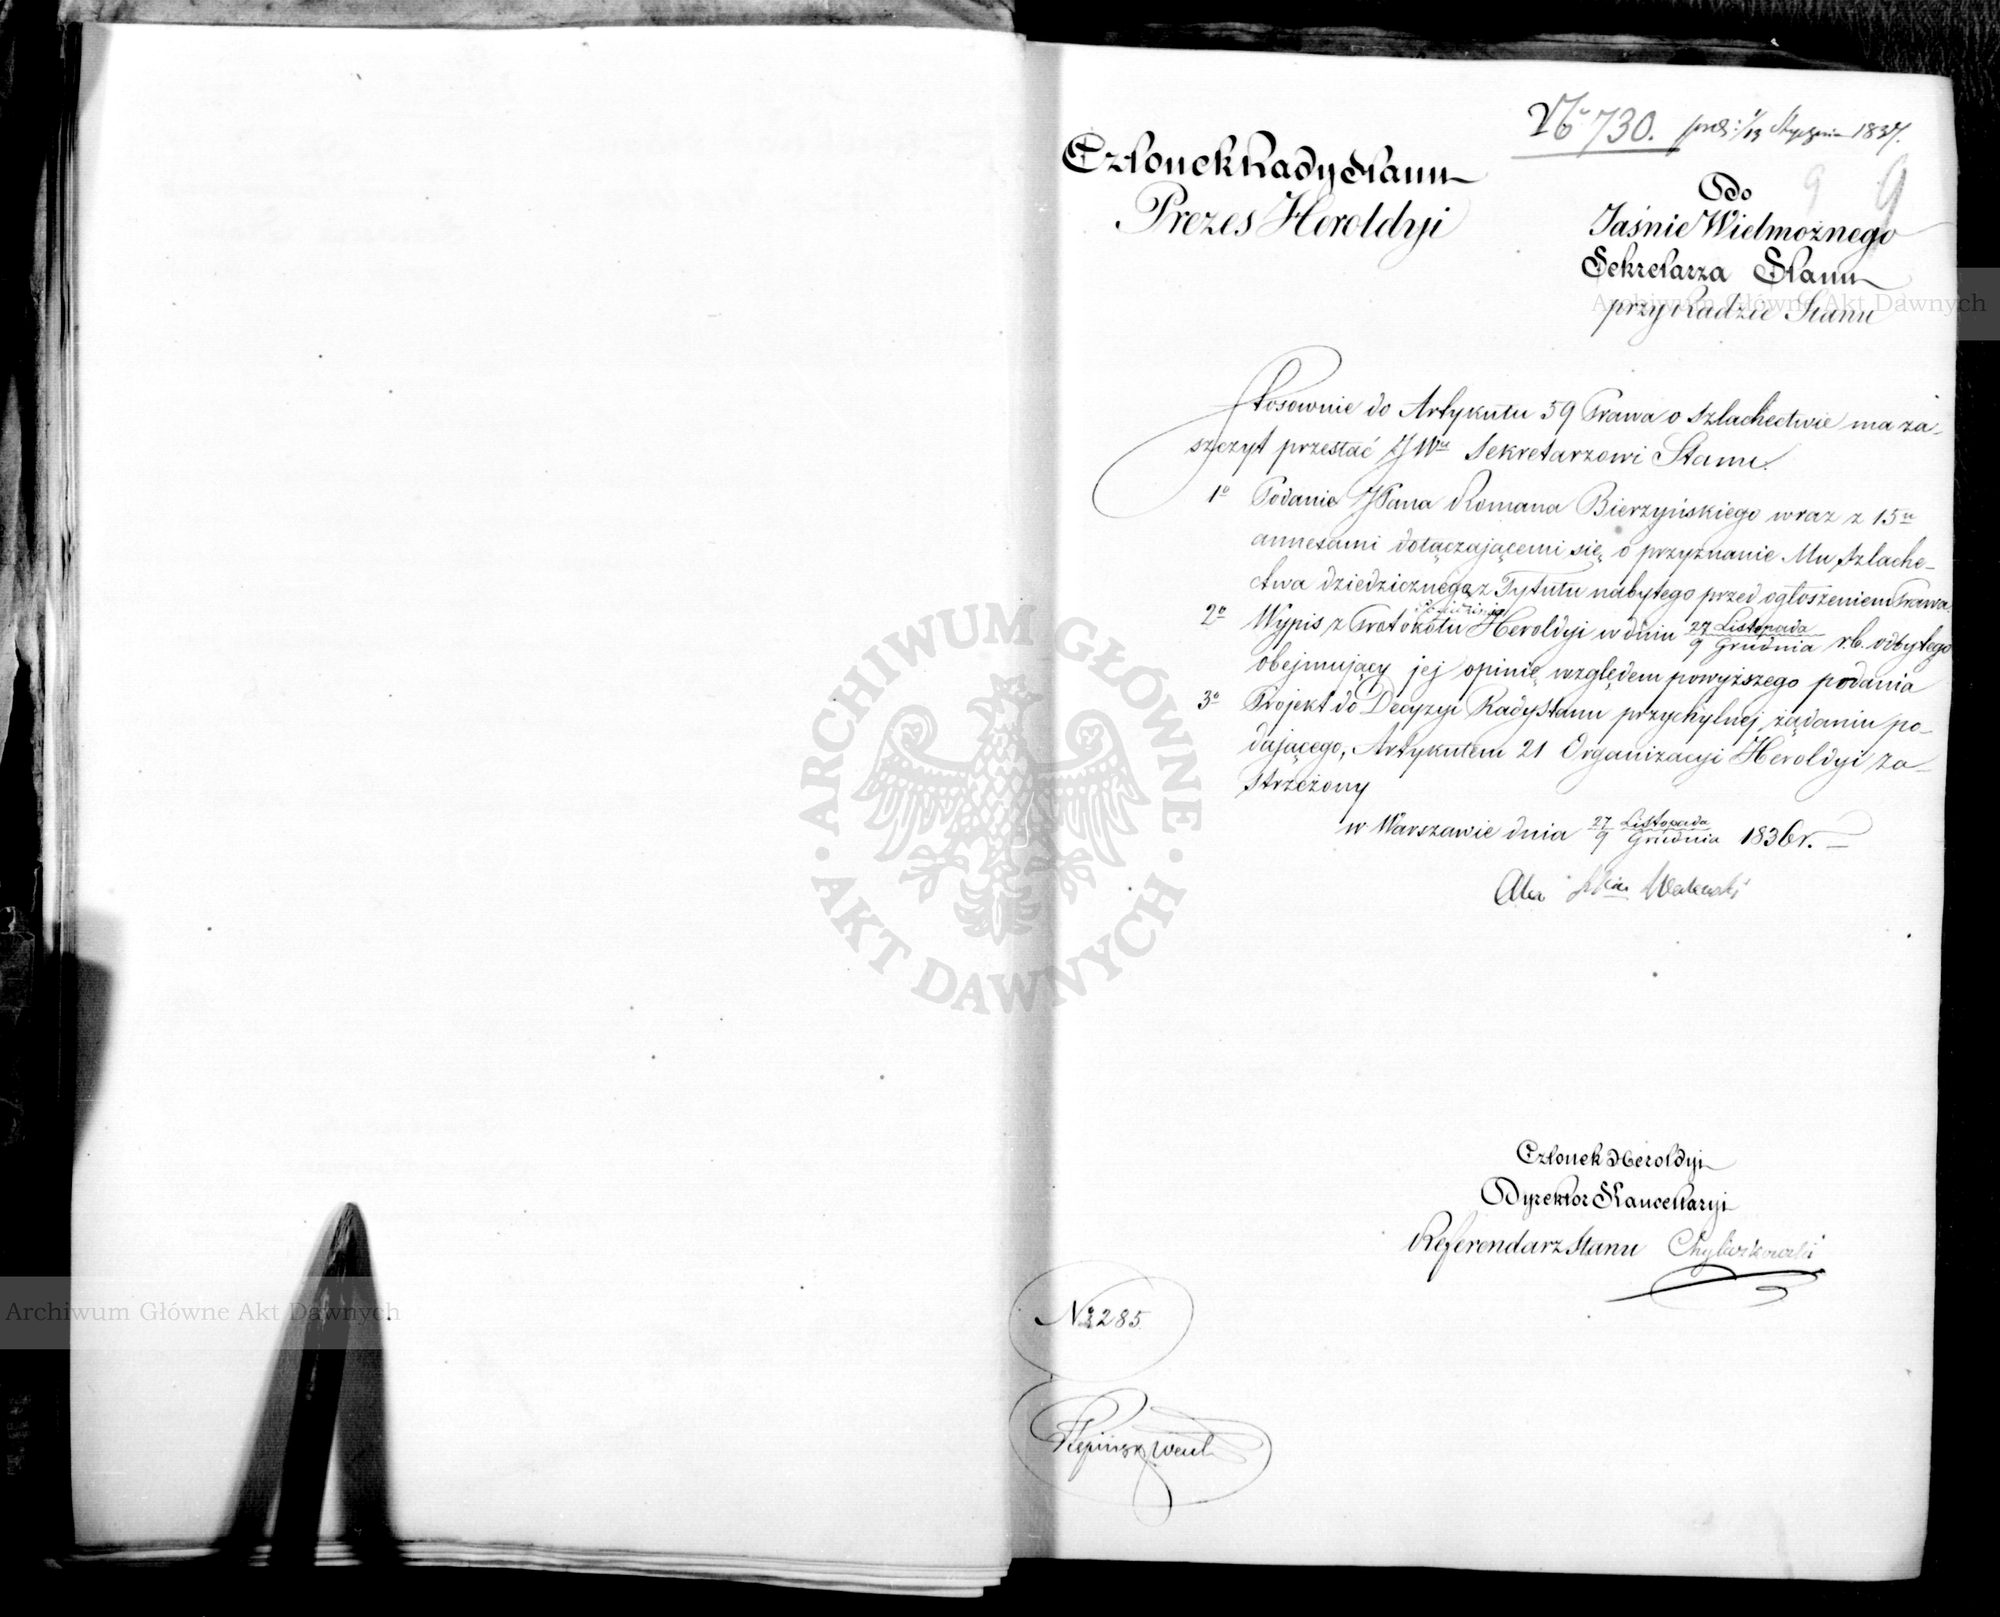 No 730. 1/13 Stycznia 1837.
9 9
Członek Rady Stanu
Prezes Heroldyi
Do
Jaśnie Wielmożnego
Sekretarza Stanu
przy Radzie Stanu
Stosownie do Artykułu 59 Prawa o Szlachectwie ma za-
szczyt przesłać JWu Sekretarzowi Stanu.
1o Podanie JPana Romana Bierzyńskiego wraz z 15u
annexami dołączającemi się, o przyznanie Mu Szlache-
ctwa dziedzicznego z Tytułu nabytego przed ogłoszeniem Prawa.
2o Wypis z Protokółu Posiedzenia Heroldyi w dniu 27 Listopada / 9 Grudnia r.b. odbytego
obejmujący jej opinię względem powyższego podania
3o Projekt do Decyzyi Rady Stanu przychylnej żądaniu po-
dającego, Artykułem 21 Organizacyi Heroldyi za-
strzeżony
w Warszawie dnia 27 Listopada / 9 Grudnia 1836 r.
Walewski
Członek Heroldyi
Dyrektor Kancellaryi
Referendarz Stanu
N 2285.
Archiwum Główne Akt Dawnych
Archiwum Główne Akt Dawnych
ARCHIWUM GŁÓWNE
AKT DAWNYCH